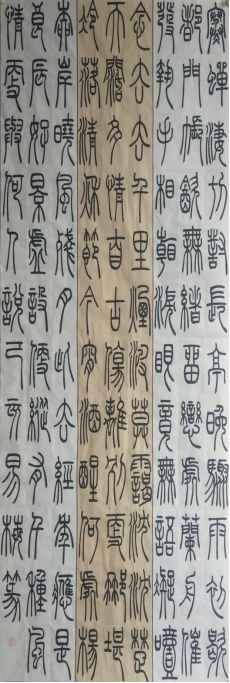 寒蟬淒切對長亭晚驟雨初歇
都門帳飲無緒留戀處蘭舟催
發執手相看淚眼竟無語凝噎
念去去千里煙波暮靄沈沈楚
天闊多情自古傷離別更那堪
冷落清秋節今宵酒醒何處楊
柳岸曉風殘月此去經年應是
良辰好景虛設便縱有千種風
情更與何人說 易梅篆